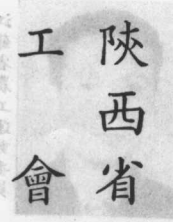 陝西省
工會